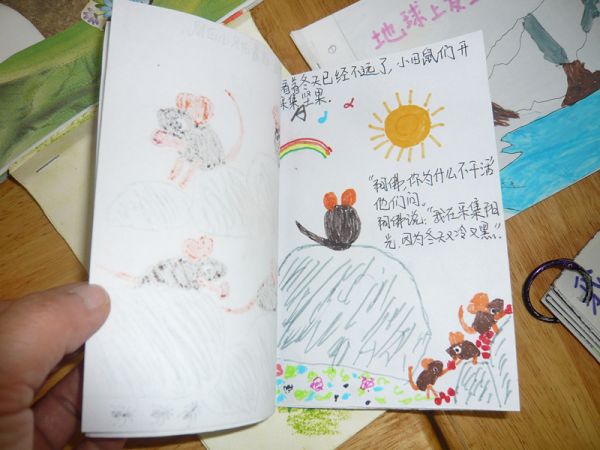 看着冬天已经不远了,小田鼠们开
采集坚果.
"阿佛,你为什么不干活
他们问.
阿佛说:"我在采集阳
光,因为冬天又冷又黑."
地球上